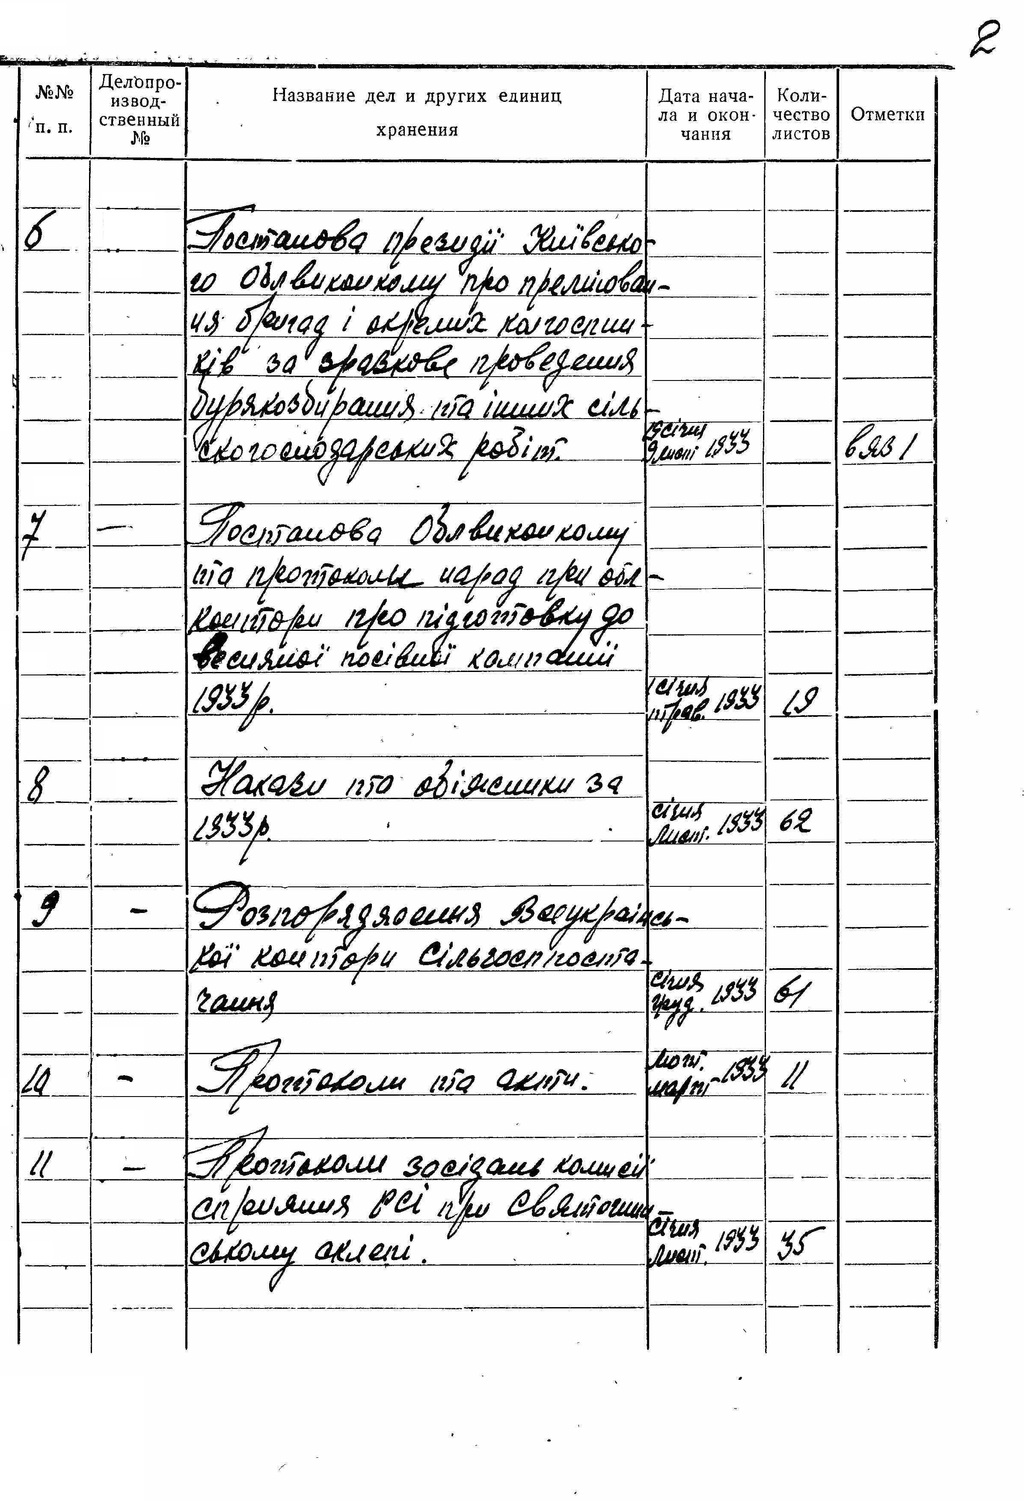 2
№№ п. п.
Делопроизводственный №
Название дел и других единиц хранения
Дата начала и окончания
Количество листов
Отметки
6
Постанова президії Київсько-
го Облвиконкому про преміюван-
ня бригад і окремих колгоспни-
ків за зразкове проведення
бурякозбирання та інших сіль-
ськогосподарських робіт.
19 січня
9 лист 1933
в яз 1
7 —
Постанова Облвиконкому
та протоколи нарад при обл-
конторі про підготовку до
весняної посівної кампанії
1933р.
1 січня
трав. 1933
19
8
Накази та обіжники за
1933р.
січня
Лист. 1933
62
9 —
Розпорядження Всеукраїнсь-
кої контори Сільгосппоста-
чання
січня
груд. 1933
61
10 —
Протоколи та акти.
лют.
март 1933
11
11 —
Протоколи засідань комісії
сприяння РСІ при Святошин-
ському склепі.
січня
Лист. 1933
35